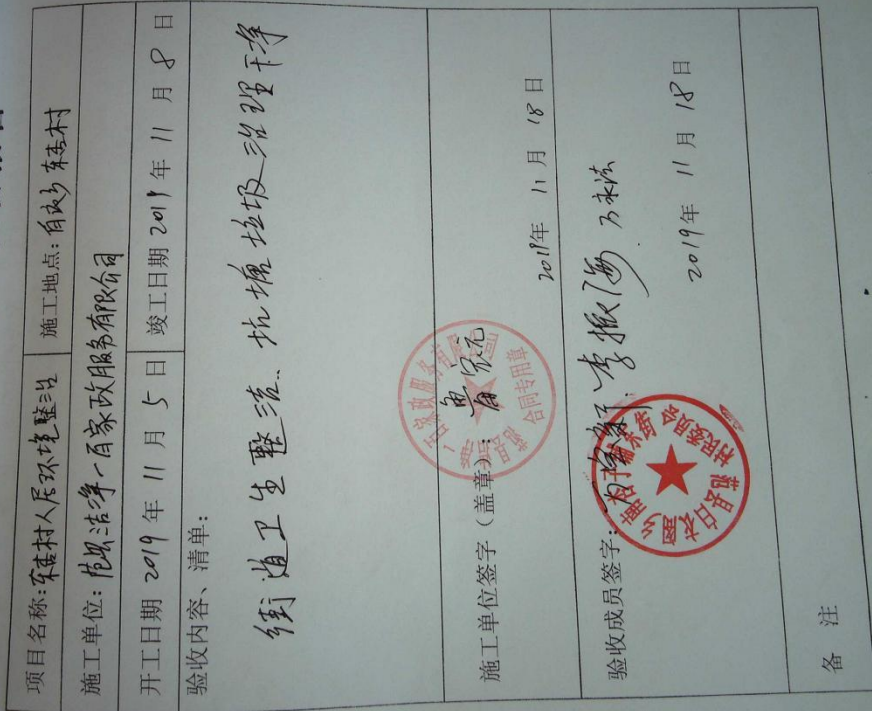 项目名称：东桂村人居环境整治 施工地点：白衣乡东桂村
施工单位：范县洁净一百家政服务有限公司
开工日期 2019 年 11 月 5 日 竣工日期 2019 年 11 月 8 日
验收内容、清单：
街道卫生整洁、坑塘垃圾治理干净
施工单位签字（盖章）：
合同专用章
2019年 11 月 18 日
验收成员签字： 李振海
村民委员会
2019年 11 月 18 日
备 注